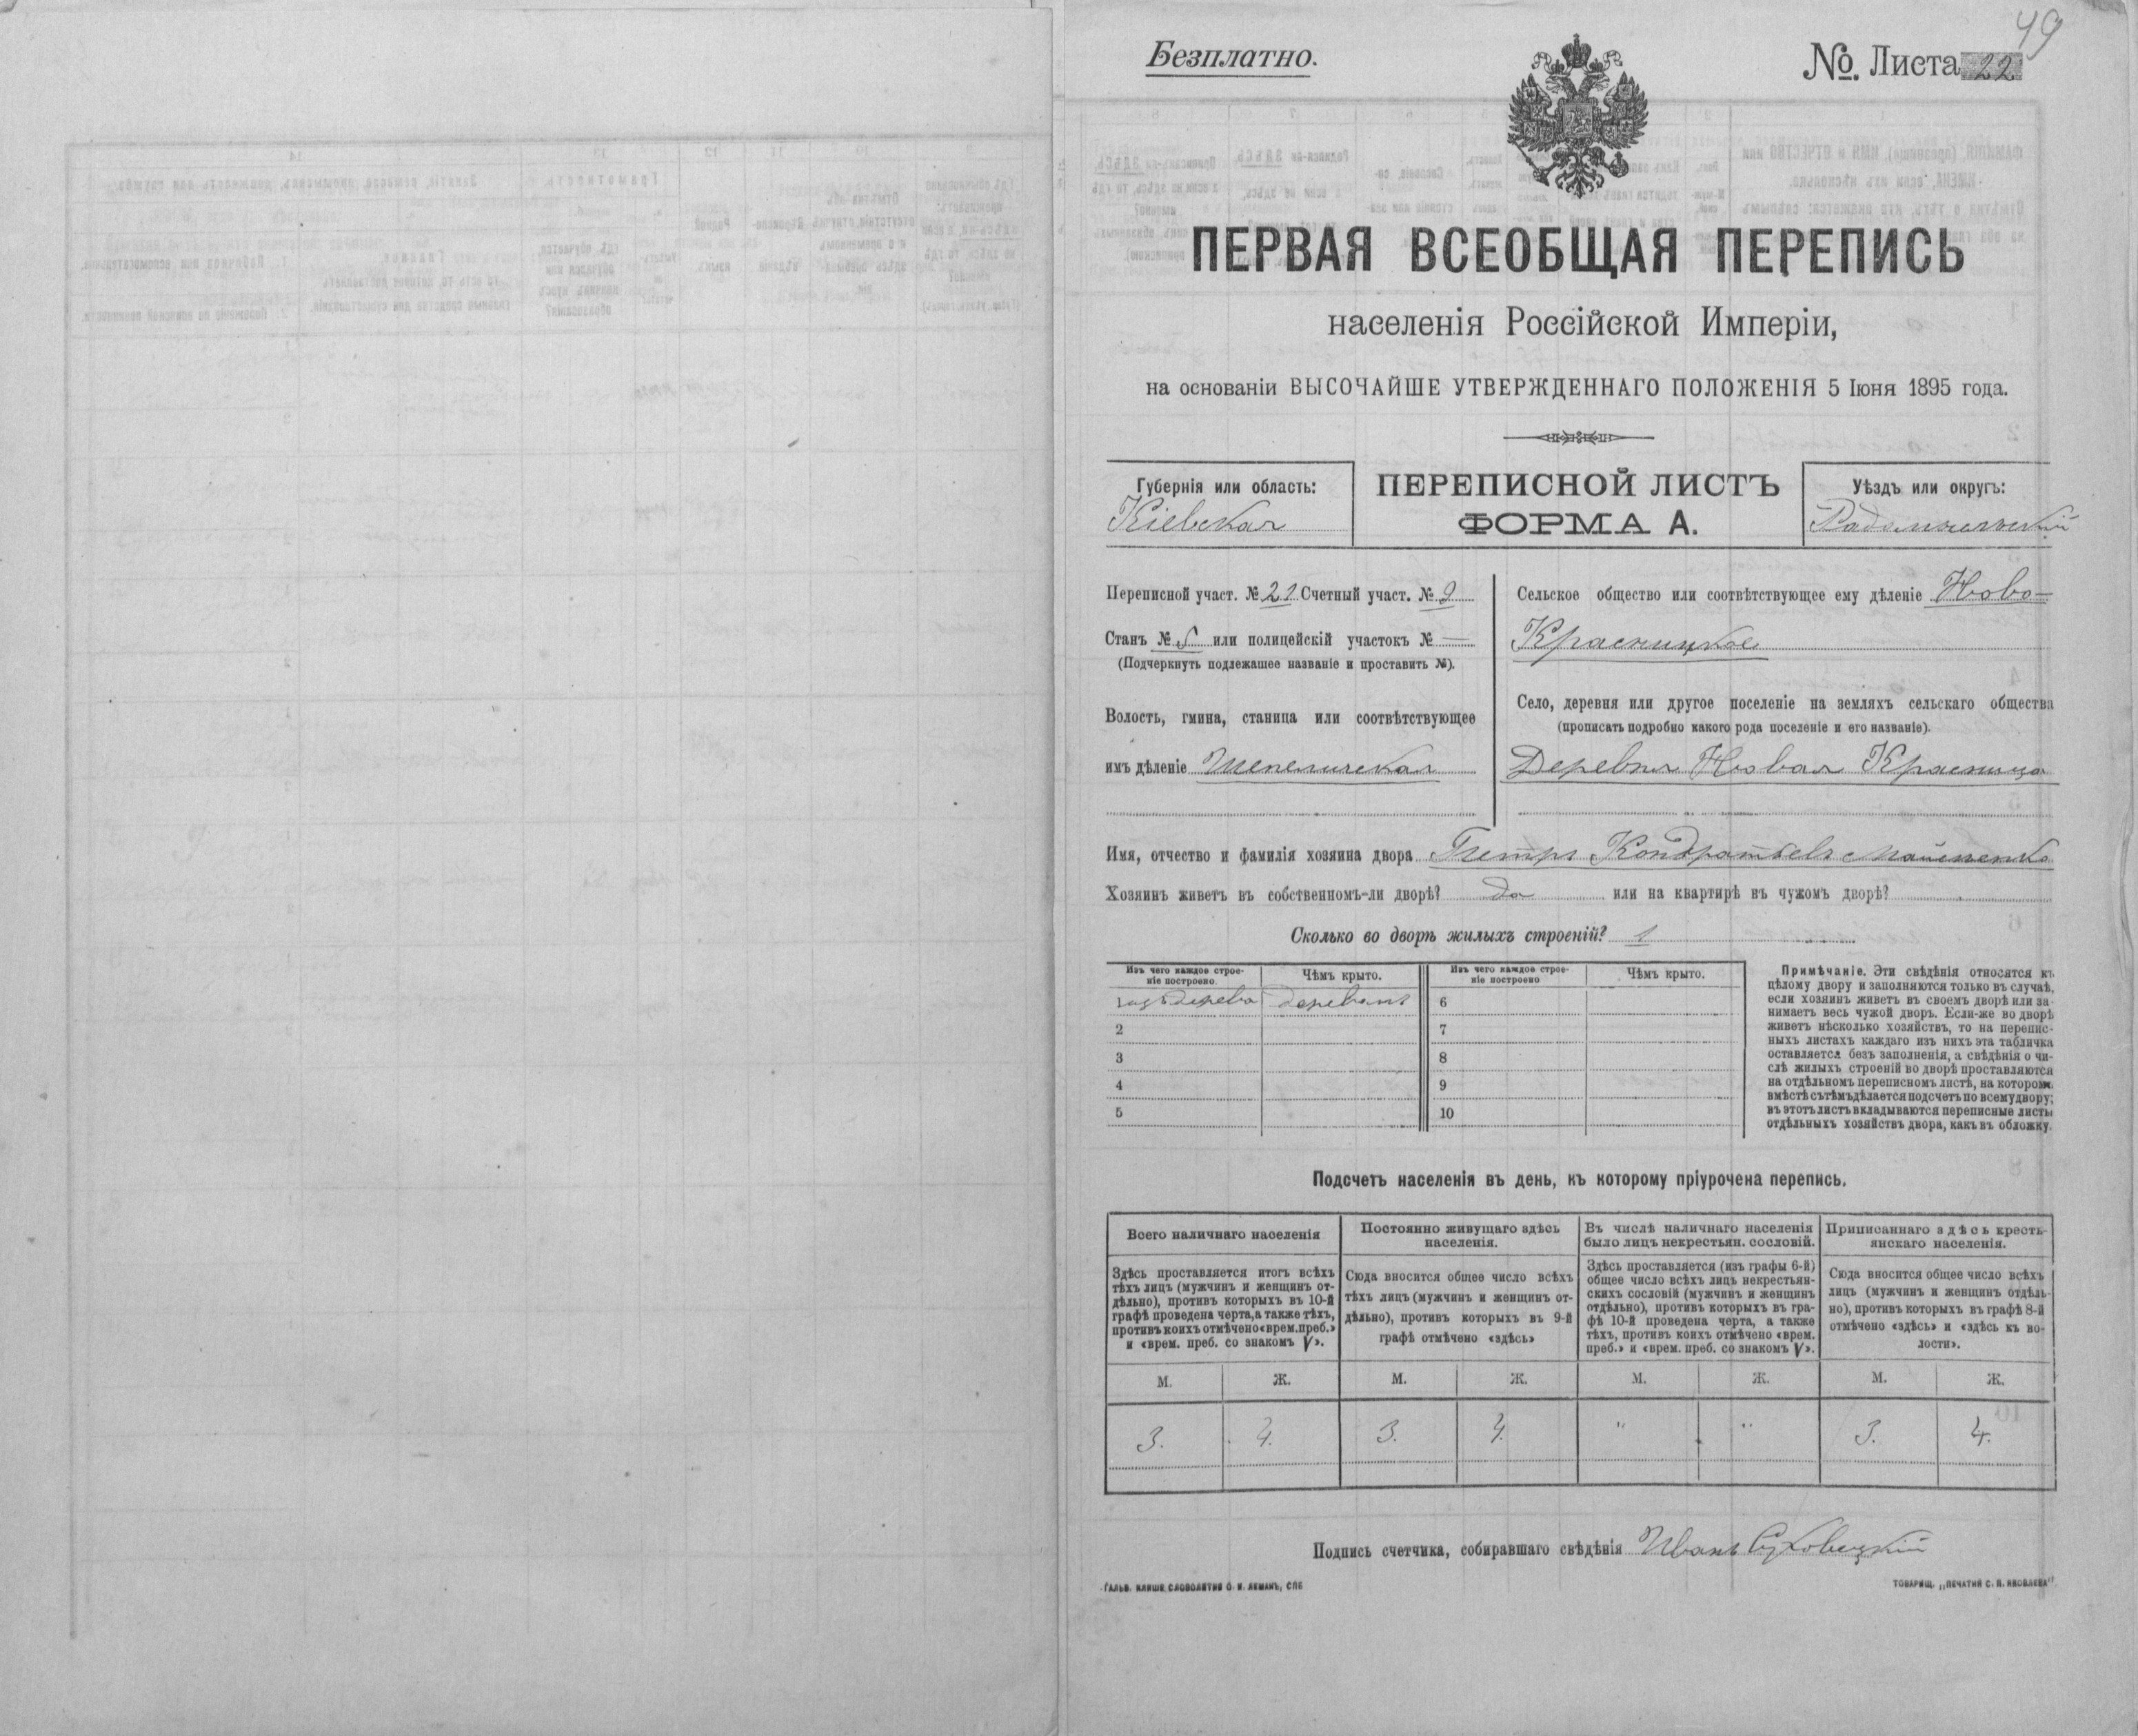 49
Безплатно.
№. Листа 22
ПЕРВАЯ ВСЕОБЩАЯ ПЕРЕПИСЬ
населенія Россійской Имперіи,
на основаніи ВЫСОЧАЙШЕ УТВЕРЖДЕННАГО ПОЛОЖЕНІЯ 5 Іюня 1895 года.
Губернія или область:
Кіевская
ПЕРЕПИСНОЙ ЛИСТЪ
ФОРМА А.
Уѣздъ или округъ:
Радомысльскій
Переписной участ. № 21 Счетный участ. № 9
Станъ № 5 или полицейскій участокъ № —
(Подчеркнуть подлежащее названіе и проставить №).
Волость, гмина, станица или соотвѣтствующее
имъ дѣленіе Шепеличская
Сельское общество или соотвѣтствующее ему дѣленіе Ново-
Красницкое
Село, деревня или другое поселеніе на земляхъ сельскаго общества
(прописать подробно какого рода поселеніе и его названіе).
Деревня Новая Красница
Имя, отчество и фамилія хозяина двора Петръ Кондратьевъ
Хозяинъ живетъ въ собственномъ-ли дворѣ? да или на квартирѣ въ чужомъ дворѣ?
Сколько во дворѣ жилыхъ строеній? 1
Изъ чего каждое строе-
ніе построено.
Чѣмъ крыто.
Изъ чего каждое строе-
ніе построено
Чѣмъ крыто.
1 изъ дерева деревомъ 6
2 7
3 8
4 9
5 10
Примѣчаніе. Эти свѣдѣнія относятся къ
цѣлому двору и заполняются только въ случаѣ,
если хозяинъ живетъ въ своемъ дворѣ или за-
нимаетъ весь чужой дворъ. Если-же во дворѣ
живетъ нѣсколько хозяйствъ, то на перепис-
ныхъ листахъ каждаго изъ нихъ эта табличка
оставляется безъ заполненія, а свѣдѣнія о чи-
слѣ жилыхъ строеній во дворѣ проставляются
на отдѣльномъ переписномъ листѣ, на которомъ
вмѣстѣ съ тѣмъ дѣлается подсчетъ по всему двору;
въ этотъ листъ вкладываются переписные листы
отдѣльныхъ хозяйствъ двора, какъ въ обложку.
Подсчетъ населенія въ день, къ которому пріурочена перепись.
Всего наличнаго населенія
Здѣсь проставляется итогъ всѣхъ
тѣхъ лицъ (мужчинъ и женщинъ от-
дѣльно), противъ которыхъ въ 10-й
графѣ проведена черта, а также тѣхъ,
противъ коихъ отмѣчено «врем. преб.»
и «врем. преб. со знакомъ V».
Постоянно живущаго здѣсь
населенія.
Сюда вносится общее число всѣхъ
тѣхъ лицъ (мужчинъ и женщинъ от-
дѣльно), противъ которыхъ въ 9-й
графѣ отмѣчено «здѣсь»
Въ числѣ наличнаго населенія
было лицъ некрестьян. сословій.
Здѣсь проставляется (изъ графы 6-й)
общее число всѣхъ лицъ некрестьян-
скихъ сословій (мужчинъ и женщинъ
отдѣльно), противъ которыхъ въ гра-
фѣ 10-й проведена черта, а также
тѣхъ, противъ коихъ отмѣчено «врем.
преб.» и «врем. преб. со знакомъ V».
Приписаннаго здѣсь кресть-
янскаго населенія.
Сюда вносится общее число всѣхъ
лицъ (мужчинъ и женщинъ отдѣль-
но), противъ которыхъ въ графѣ 8-й
отмѣчено «здѣсь» и «здѣсь къ во-
лости».
М. Ж. М. Ж. М. Ж. М. Ж.
3. 4. 3. 4. " " 3. 4.
Подпись счетчика, собиравшаго свѣдѣнія Иванъ Суховецкій
ГАЛЬВ. КЛИШЕ СЛОВОЛИТНИ О. И. ЛЕМАНЪ, СПБ
ТОВАРИЩ. „ПЕЧАТНЯ С. П. ЯКОВЛЕВА"